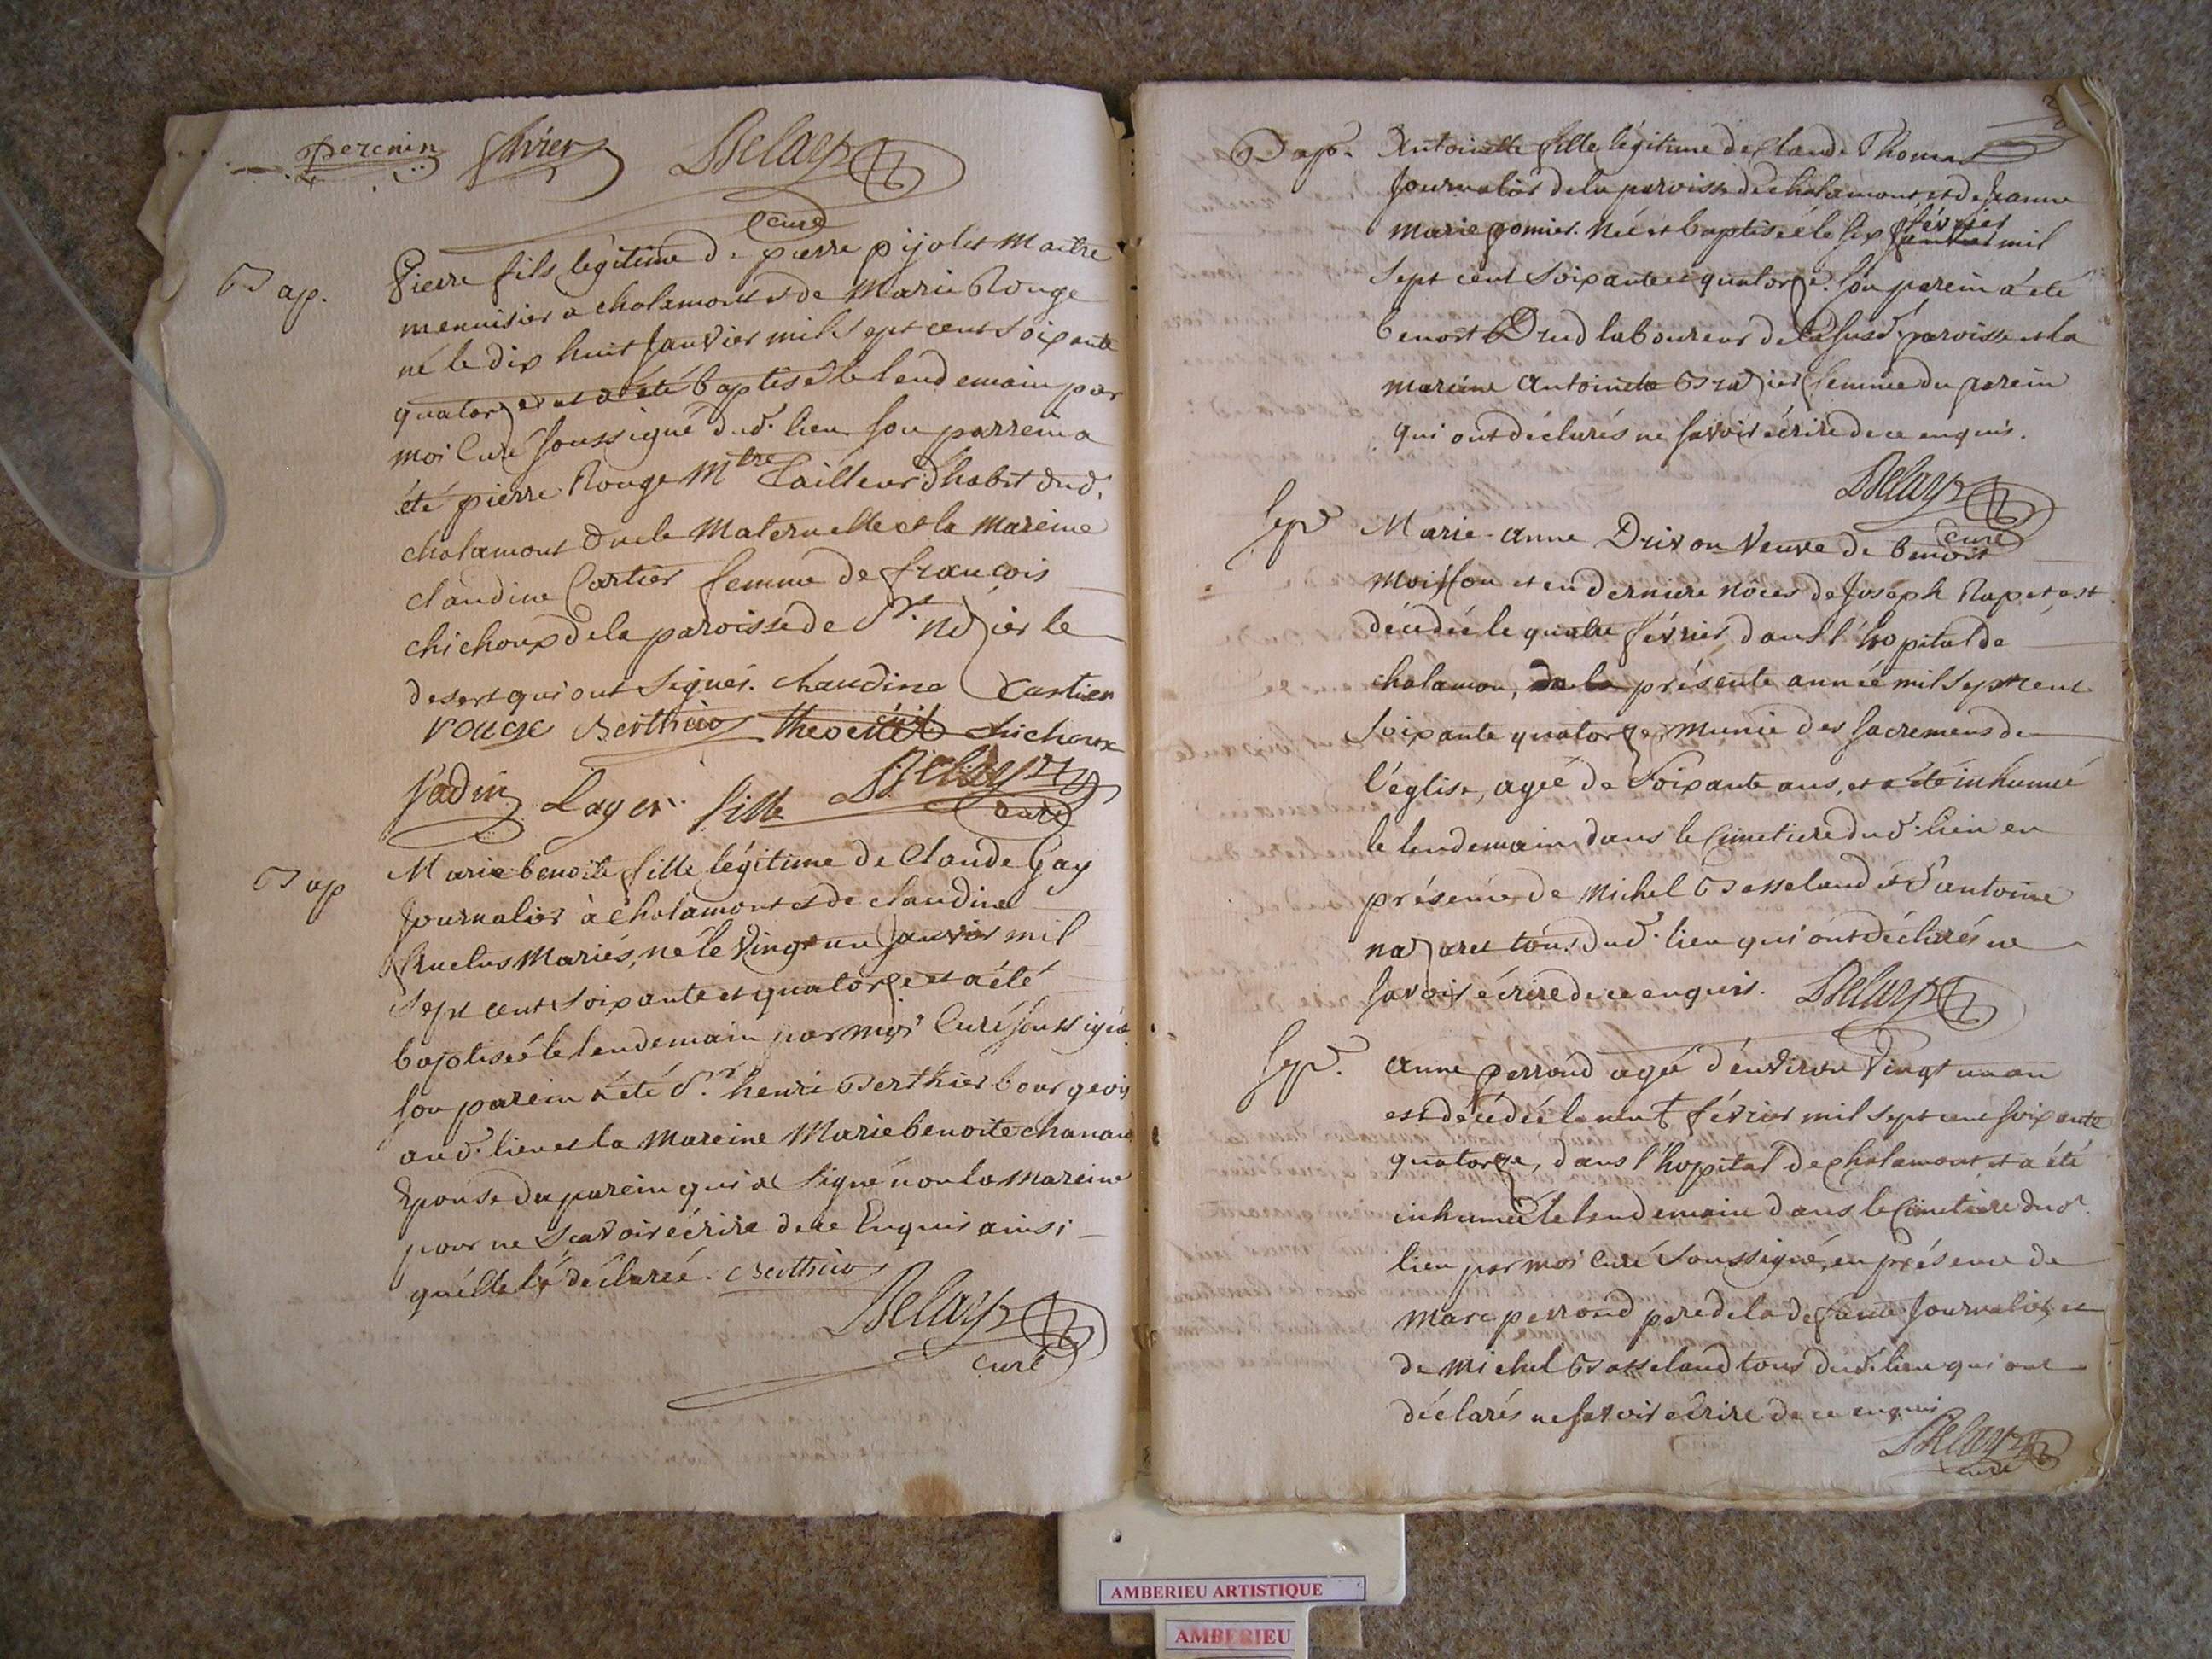 perenin Delaz
curé
Bap. Pierre fils légitime de pierre pijolet Maitre
menuisier a chalamont et de Marie Rouge
né le dix huit Janvier mil sept cent soixante
quatorze et a été baptisé le lendemain par
moi Curé soussigné dud. lieu son parrein a
été pierre Rouge Mtre Tailleur d'habit dud.
chalamont oncle Maternelle et la mareine
claudine Cartier femme de françois
chichoux de la paroisse de St. Nizier le
desert qui ont signés. claudine Cartier
rouge Berthier chichoux
Jadin Lager fille Delaz
curé
Bap Marie benoite fille légitime de Claude Gay
Journalier à Chalamont et de claudine
Ruelus Mariés, né le vingt un Janvier mil
sept cent soixante et quatorze et a été
baptisée le lendemain par moi Curé soussigné
son parein a été Sr. henri Berthier bourgeois
aud. lieu et la mareine Marie benoite chanard
Epouse du parein qui a signé non la mareine
pour ne sçavoir écrire de ce Enquis ainsi
qu'elle l'a déclarée. Berthier
Delaz
curé
Bap. Antoinette fille légitime de Claude Thomas
Journalier de la paroisse de chalamont, et de Jeanne
marie pomier. Née et baptisée le six février mil
sept cent soixante et quatorze. son parein a été
benoit Drud laboureur de la susd. paroisse et la
mareine antoinete Brazier femme du parein
qui ont déclarés ne savoir écrire de ce enquis.
Delaz
curé
Sep. Marie-anne Drivon veuve de benoit
moisson et en derniere nôces de Joseph Rapet est
décédée le quatre février, dans l'hopital de
chalamon, de la présente année mil sept cent
soixante quatorze, munie des sacremens de
l'église, agée de soixante ans, et a été inhumée
le lendemain dans le Cimetiere dud. lieu en
présence de Michel Basseland et d'antoine
nazaret tous dud. lieu qui ont déclarés ne
savoir écrire de ce enquis. Delaz
Sep. anne perrond agée d'environ vingt un an
est décédée le neuf février mil sept cent soixante
quatorze, dans l'hopital de chalamont et a été
inhumée le lendemain dans le Cimetiere dud.
lieu par moi Curé soussigné, en présence de
marc perrond pere de la defunte Journalier, et
de michel Basseland tous dud. lieu qui ont
déclarés ne savoir écrire de ce enquis
Delaz
curé
AMBERIEU ARTISTIQUE
AMBERIEU